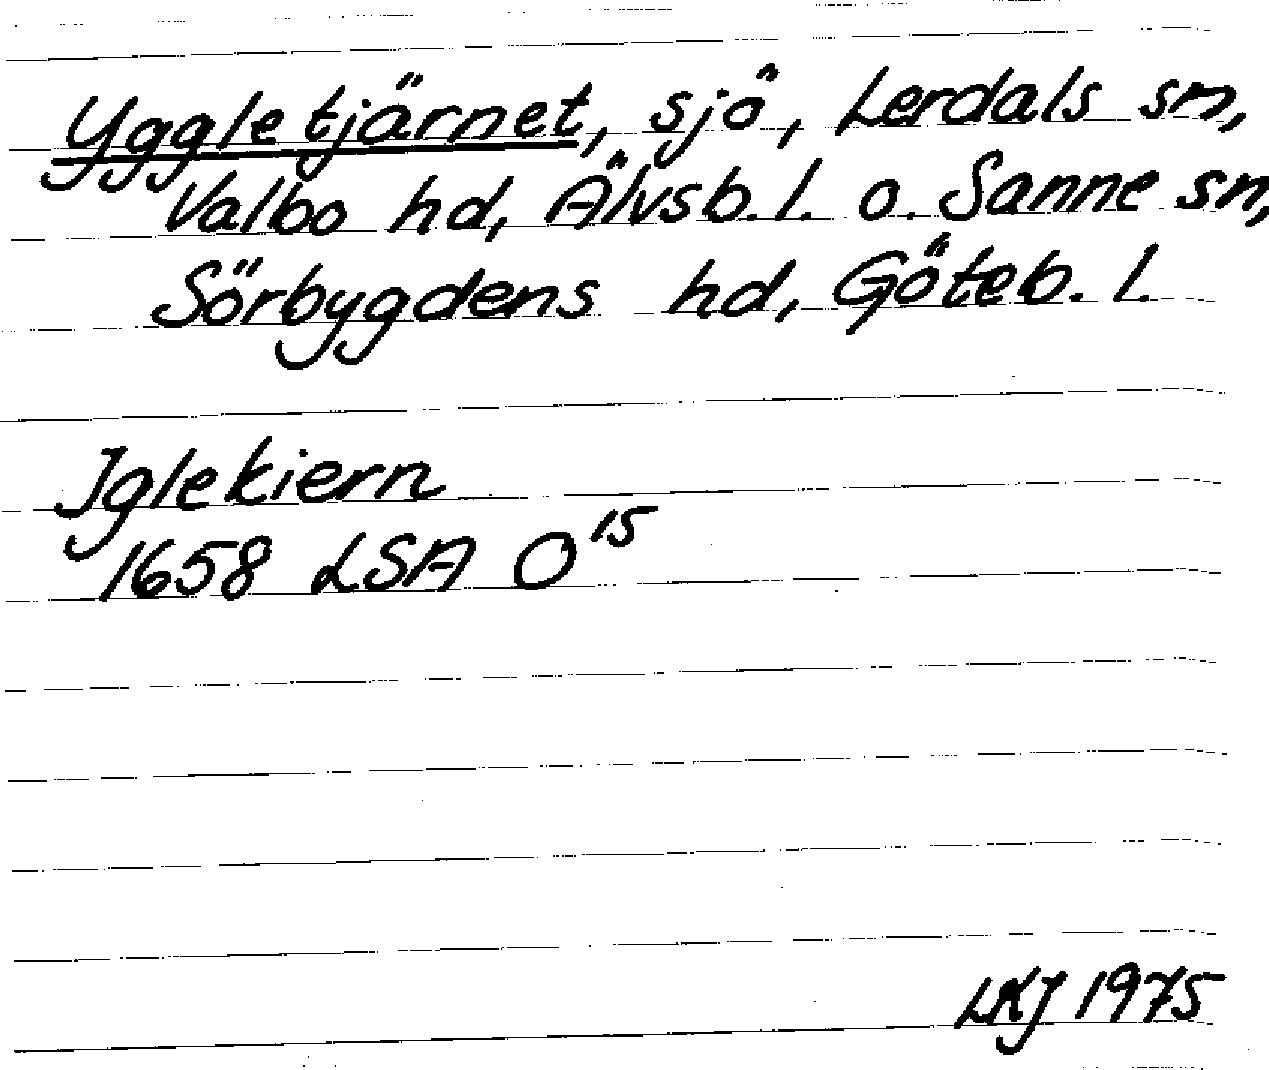 Yggletjärnet, sjö, Lerdals sn,
Valbo hd, Älvsb. l. o. Sanne sn,
Sörbygdens hd, Göteb. l.
Iglekiern
1658 LSA O 15
LKJ 1975